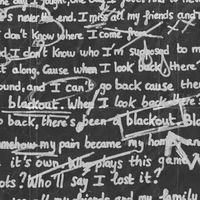 it's never the end. I miss all my friends and m
don't know where I come from
d, I don't Know who I'm supposed to m
t along. Cause when I look back there
ound, and I can't go back cause the
blackout. When I look back there
o back, there's been a blackout. Bl
omehow my pain became my home an
it's own. Who plays this gam
ots? Who'll say I lost it?
all my friends and my family